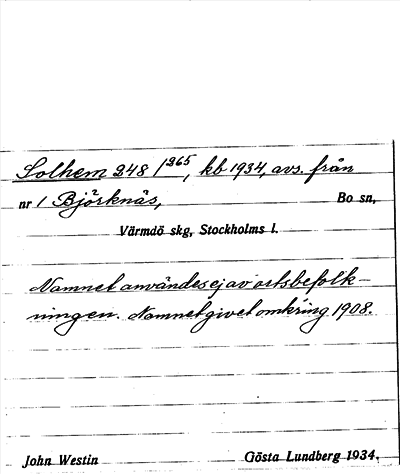 Solhem 248 /265, kb 1934, avs. från
nr 1 Björknäs, Bo sn,
Värmdö skg, Stockholms l.
Namnet användes ej av ortsbefolk-
ningen. Namnet givet omkring 1908.
John Westin Gösta Lundberg 1934.